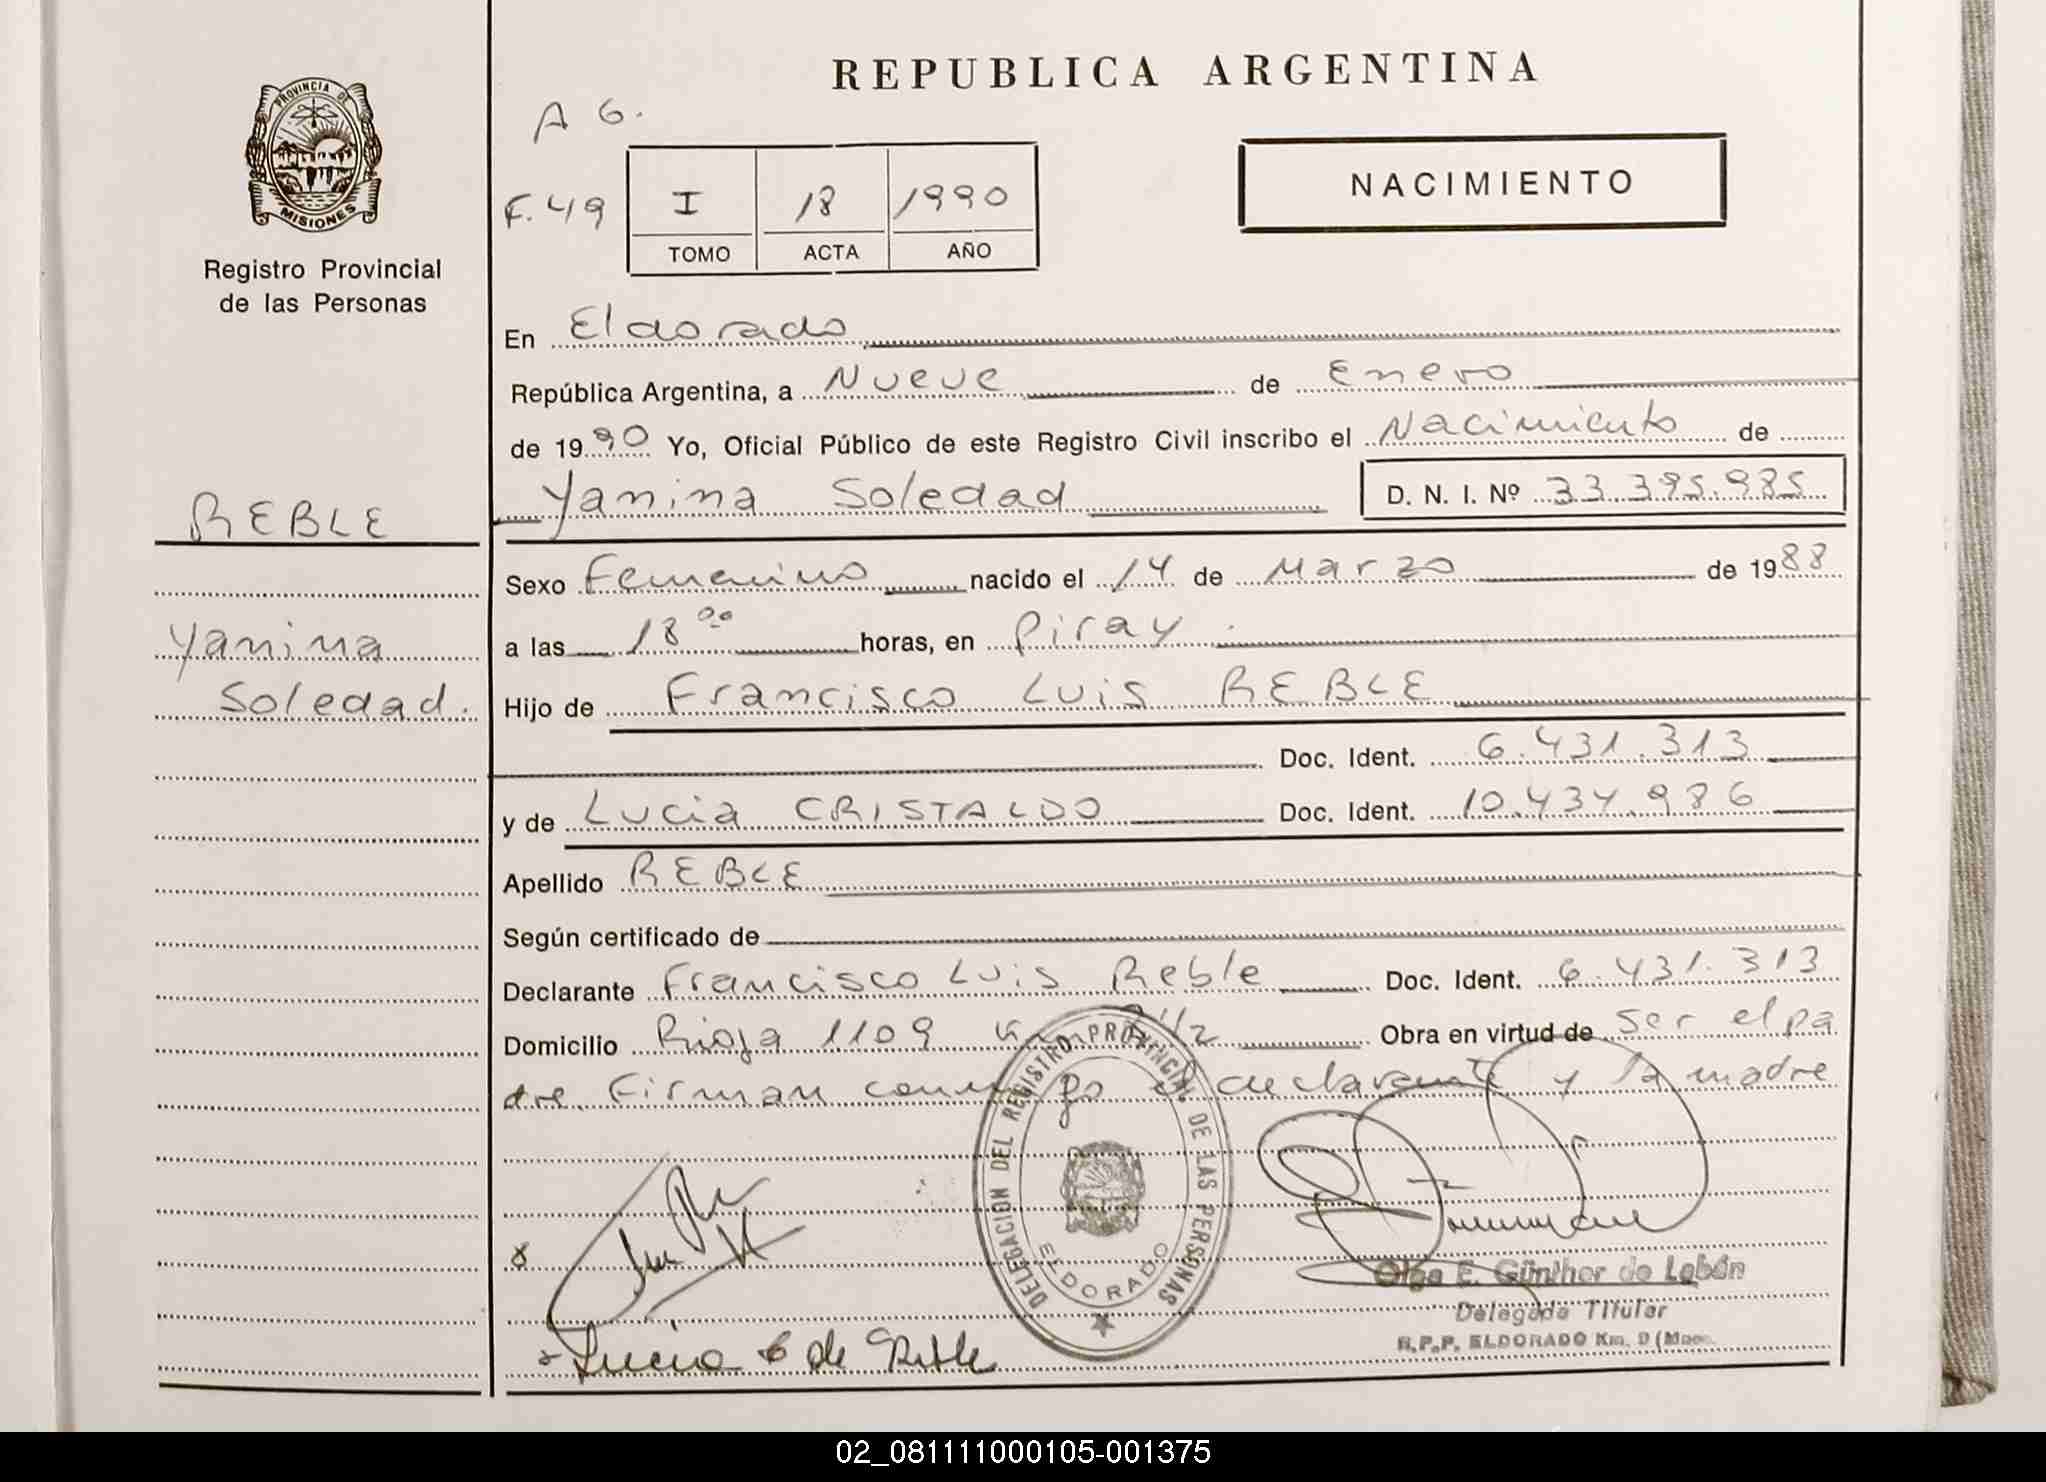 REPUBLICA ARGENTINA
PROVINCIA DE
MISIONES
Registro Provincial
de las Personas
A 6.
F. 49
I 18 1990
TOMO ACTA AÑO
NACIMIENTO
En Eldorado
República Argentina, a Nueve de Enero
de 1990 Yo, Oficial Público de este Registro Civil inscribo el Nacimiento de
Yanina Soledad D. N. I. Nº 33.395.985
REBLE
Yanina
Soledad.
Sexo Femenino nacido el 14 de Marzo de 1988
a las 18 00 horas, en Piray.
Hijo de Francisco Luis REBLE
Doc. Ident. 6.431.313
y de Lucia CRISTALDO Doc. Ident. 10.434.986
Apellido REBLE
Según certificado de
Declarante Francisco Luis Reble Doc. Ident. 6.431.313
Domicilio Rioja 1109 Obra en virtud de ser el pa
dre. Firman conmigo el declarante y la madre
DELEGACION DEL REGISTRO PROVINCIAL DE LAS PERSONAS
ELDORADO
Olga E. Günther de Lobán
Delegada Titular
R.P.P. ELDORADO Km. 9
Lucia C de Reble
02_081111000105-001375